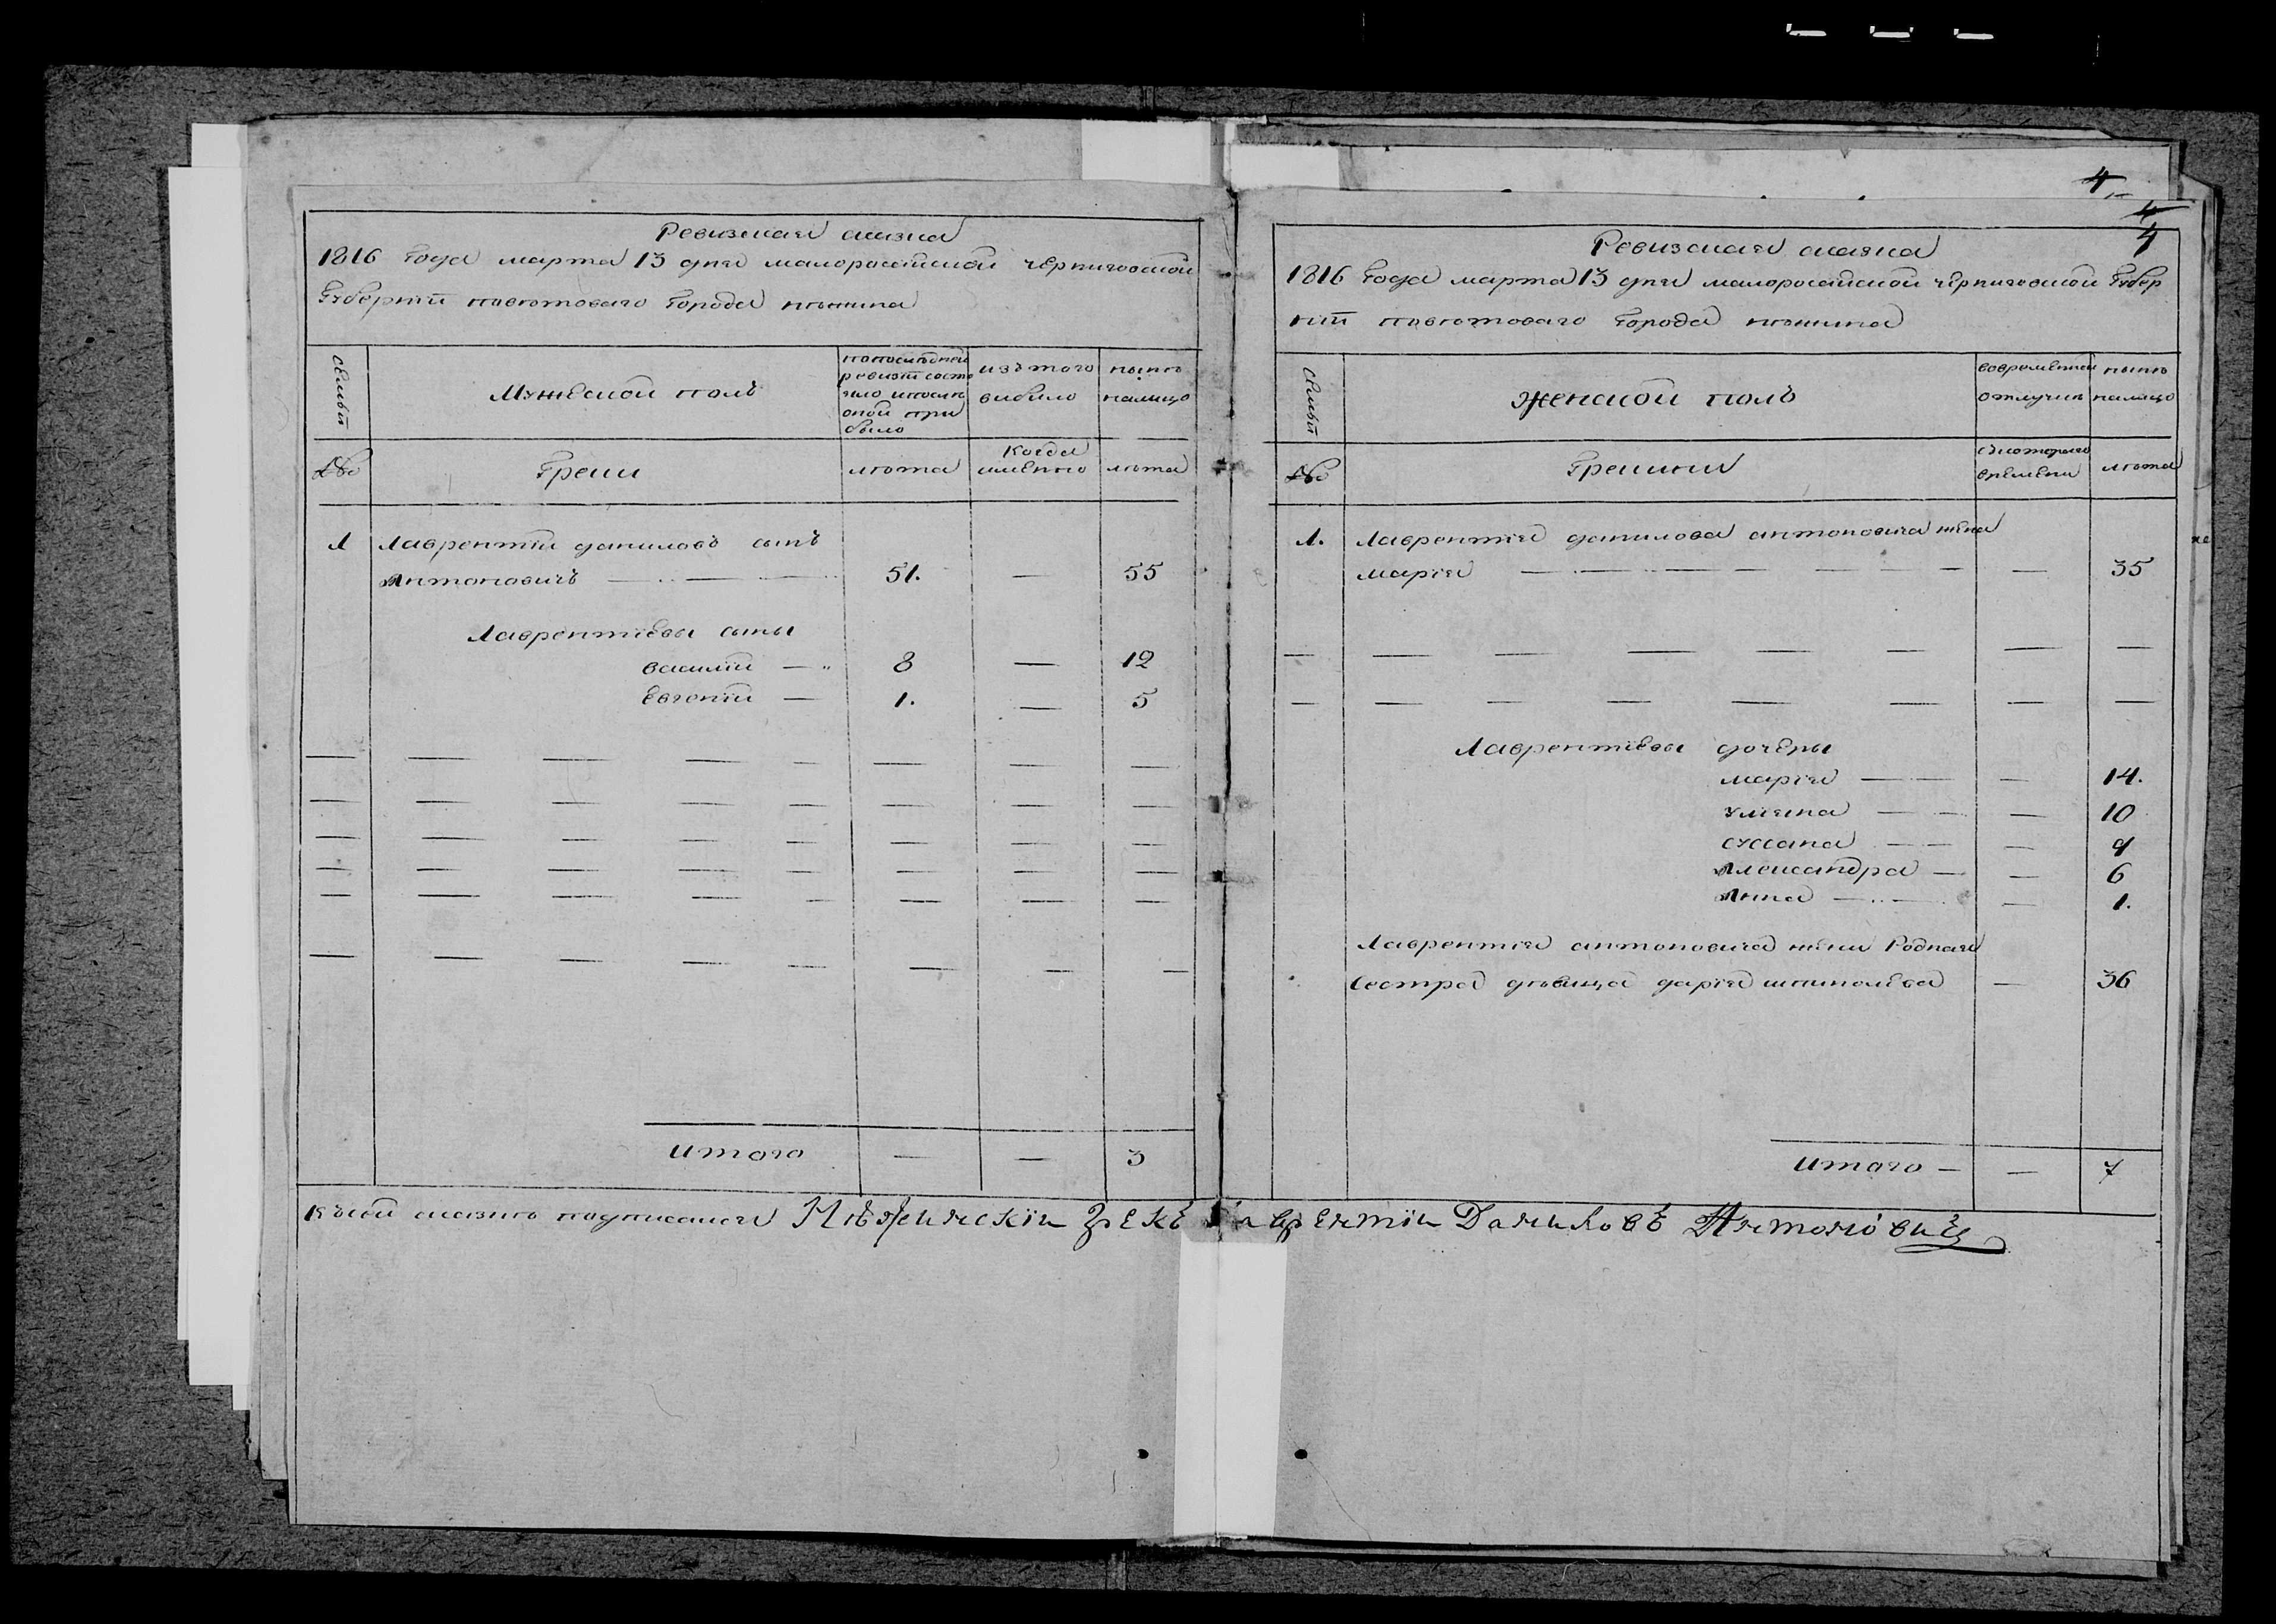 4
4
4
Ревизская сказка
1816 Года марта 13 дня малоросийской Черниговской
Губернїи повѣтоваго Города нѣжина
семьи
Мужеской полъ
попослѣдней
ревизїи состо
яло ипослѣ
оной при
было
изътого
выбило
нынѣ
налицо
№
Греки
лѣта
Когда
именно
лѣта
1
Лаврентїй даниловъ сынъ
Антоновичъ — 51. — 55
Лаврентїевы сыны
василїй — 8 — 12
Евгенїй — 1. — 5
итого — — 3
Ревизская сказка
1816 Года марта 13 дня малоросийской Черниговской Губер
нїи повѣтоваго Города нѣжина
семьи
Женской полъ
вовременной
отлучкѣ
нынѣ
налицо
№
Грекини
съкотораго
времени
лѣта
1.
Лаврентїя данилова антоновича жена
марїя — — 35
Лаврентїевы дочеры
марїя — — 14.
улїяна — — 10
сусана — — 9
Александра — — 6
Анна — — 1.
Лаврентїя антоновича жены Родная
Сестра дѣвица дарїя — 36
итого — — 7
Късей сказки подписался Нѣжинскїи Грекъ Лаврентїи Даниловъ Антоновичъ